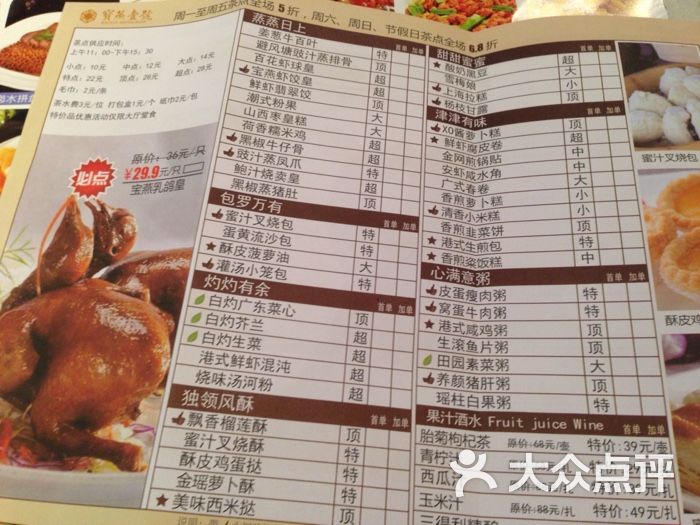 宝燕壹号
周一至周五茶点全场5折，周六、周日、节假日茶点全场6.8折
茶点供应时间：
上午11：00-下午15：30
小点：10元 中点：12元 大点：14元
特点：22元 顶点：28元 超点：29元
毛巾：2元/条
茶水费3元/位 打包盒1元/个 纸巾2元/包
特价品优惠活动仅限大厅堂食
必点
原价：36元/只
¥29.9元/只
宝燕乳鸽皇
蒸蒸日上 首单 加单
姜葱牛百叶 特
避风塘豉汁蒸排骨 特
百花虾球皇 顶
宝燕虾饺皇 超
鲜虾翡翠饺 超
潮式粉果 顶
山西枣皇糕 大
荷香糯米鸡 大
黑椒牛仔骨 顶
豉汁蒸凤爪 特
鲍汁烧卖皇 超
黑椒蒸猪肚 顶
包罗万有 首单 加单
蜜汁叉烧包 特
蛋黄流沙包 特
酥皮菠萝油 特
灌汤小笼包 大
灼灼有余 首单 加单
白灼广东菜心 超
白灼芥兰 超
白灼生菜 超
港式鲜虾混沌 超
烧味汤河粉 超
独领风酥 首单 加单
飘香榴莲酥 顶
蜜汁叉烧酥
酥皮鸡蛋挞
金瑶萝卜酥
美味西米挞
甜甜蜜蜜 首单 加单
酸奶黑豆 超
雪梅娘 大
上海拉糕 小
杨枝甘露 顶
津津有味 首单 加单
XO酱萝卜糕 顶
鲜虾腐皮卷 中
金网煎锅贴 中
安虾咸水角 中
广式春卷 大
香煎萝卜糕 大
清香小米糕 小
香煎韭菜饼 顶
港式生煎包 特
香煎粢饭糕 中
心满意粥 首单 加单
皮蛋瘦肉粥 特
窝蛋牛肉粥 特
港式咸鸡粥 顶
生滚鱼片粥 顶
田园素菜粥 大
养颜猪肝粥 顶
瑶柱白果粥 特
果汁酒水 Fruit juice Wine 首单 加单
胎菊枸杞茶 原价：68元/壶 特价：39元/壶
青柠汁
西瓜汁
玉米汁 原价：88元/扎 特价：49元/扎
蜜汁叉烧包
酥皮鸡
大众点评